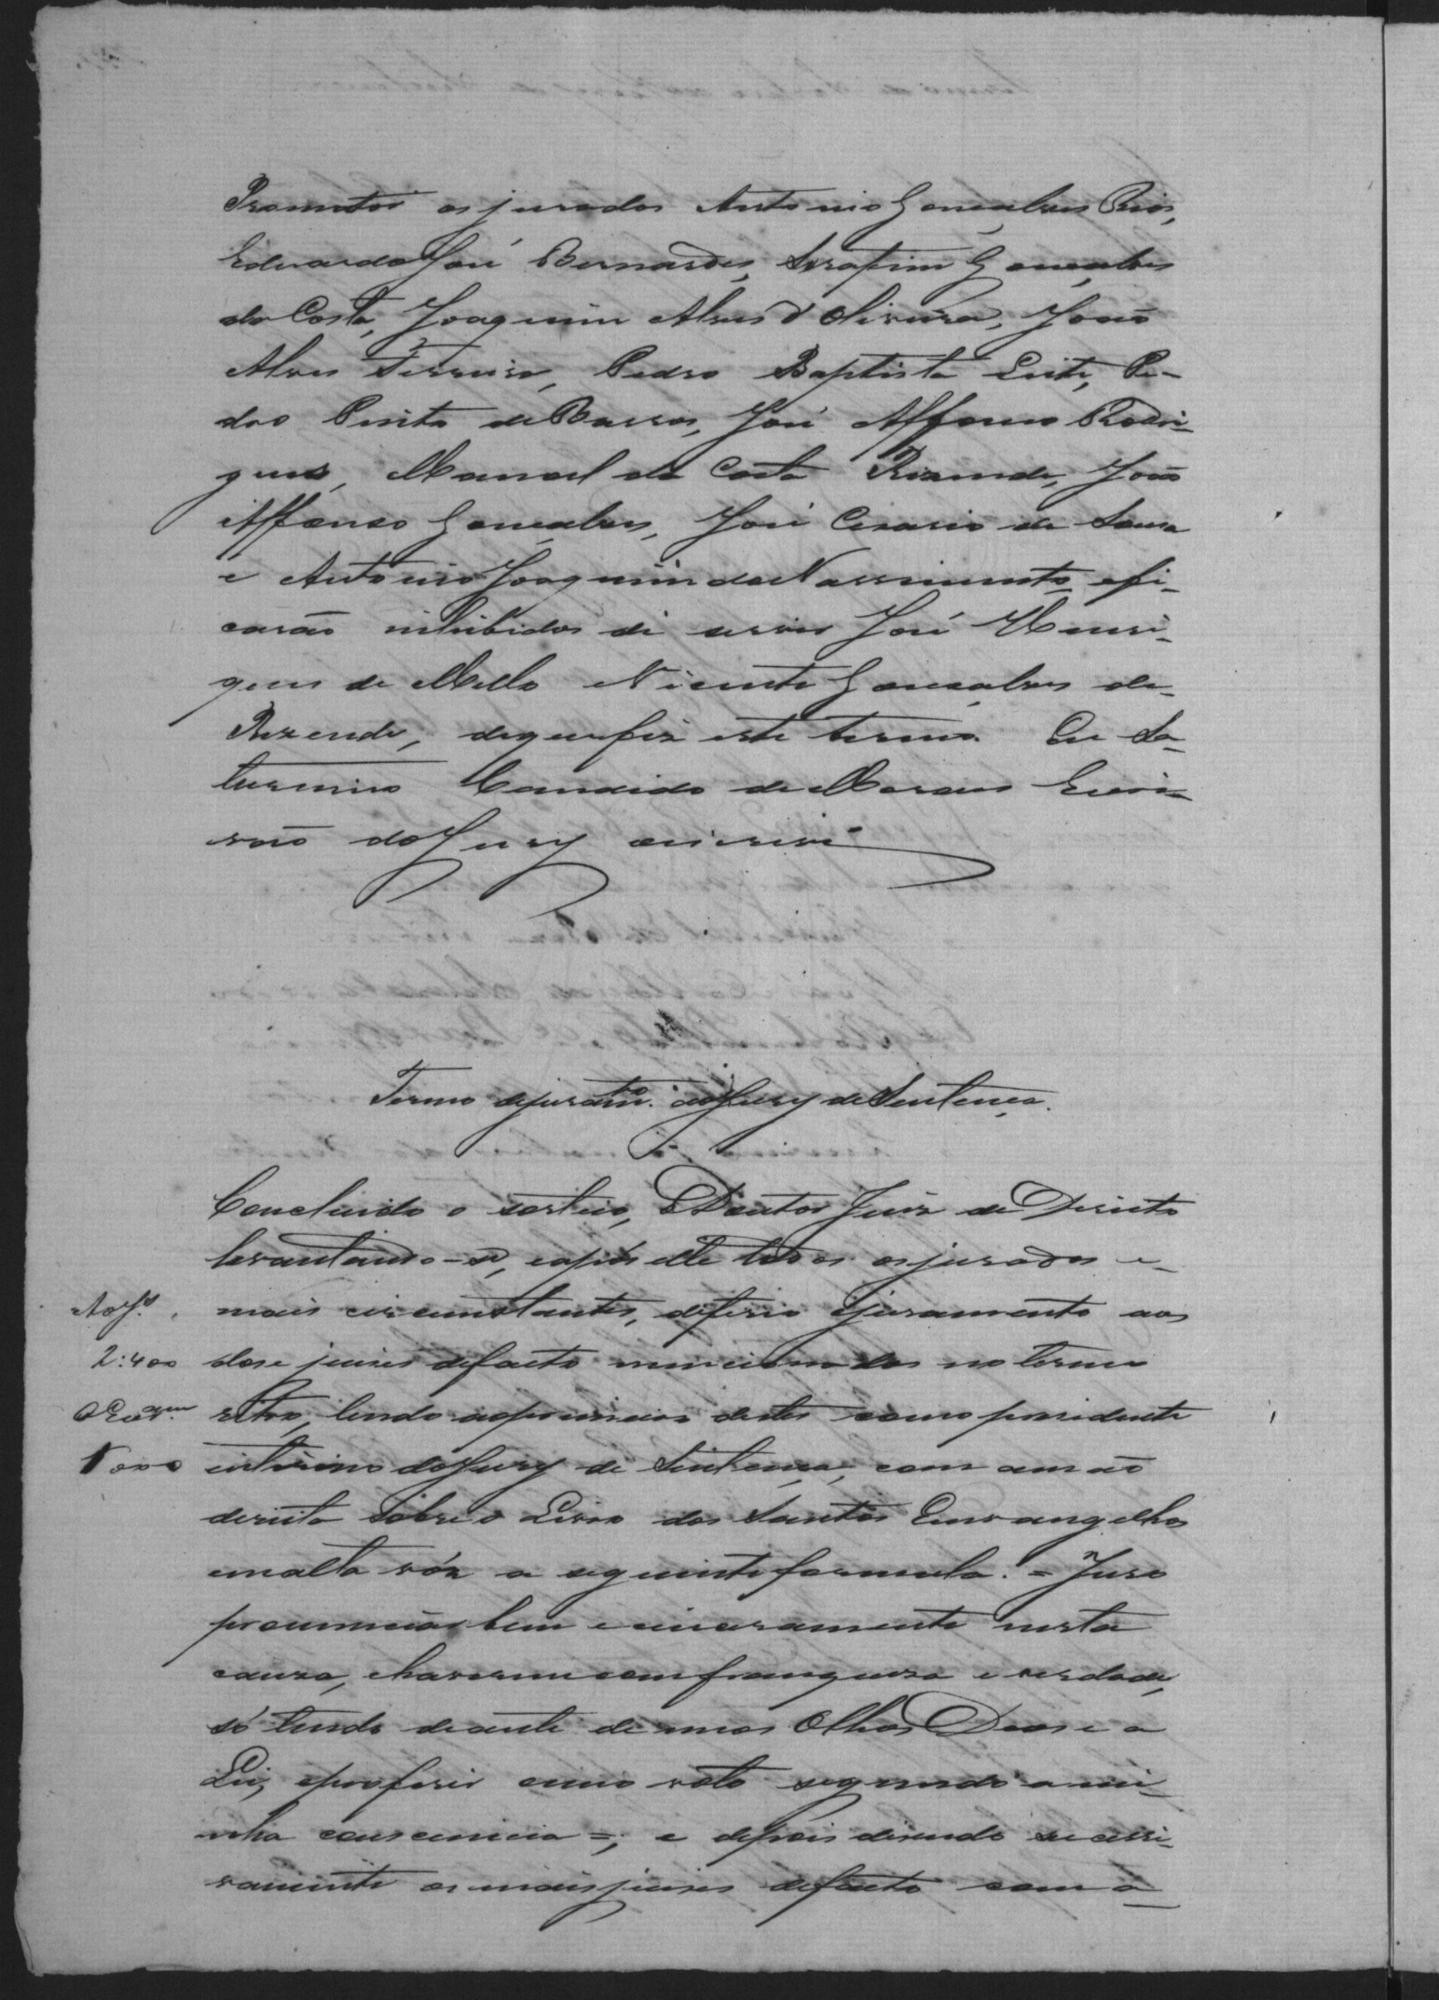 Promotor os jurados Antonio Gonçalves Rios,
Eduardo José Bernardes, Serafim Gonçalves
da Costa, Joaquim Alves d'Oliveira, João
Alves Ferreira, Pedro Baptista Leite, Pe-
dro Pinto de Barros, José Affonso Rodri-
gues, Manoel da Costa Rezende, João
Affonso Gonçalves, José Cesario de Sousa
e Antonio Joaquim do Nascimento, e fi-
carão inhibidos de servir José Henri-
ques de Mello e Vicente Gonçalves de
Rezende, de que fiz este termo. Eu Sa-
turnino Candido de Moraes Escri-
vão do Jury escrevi
Termo de juramto. do Jury de Sentença.
Concluido o sorteio, o Doutor Juiz de Direito
levantando-se, e apos elle todos os jurados e
mais circunstantes, deferio o juramento aos
Ao Js.
2:400
dose juises de facto mencionados no termo
retro, lendo o primeiro destes como presidente
Novo
interino do Jury de Sentença, com a mão
direita sobre o Livro dos Santos Euvangelhos
em alta vóz a seguinte formula: = Juro
pronunciar bem e sinceramente nesta
cauza, haverme com franqueza e verdade,
só tendo deante de meos Olhos Deos e a
Lei, e proferir o meo voto segundo a mi-
nha consciencia =; e depois disendo sucessi-
vamente os mais juises de facto com a